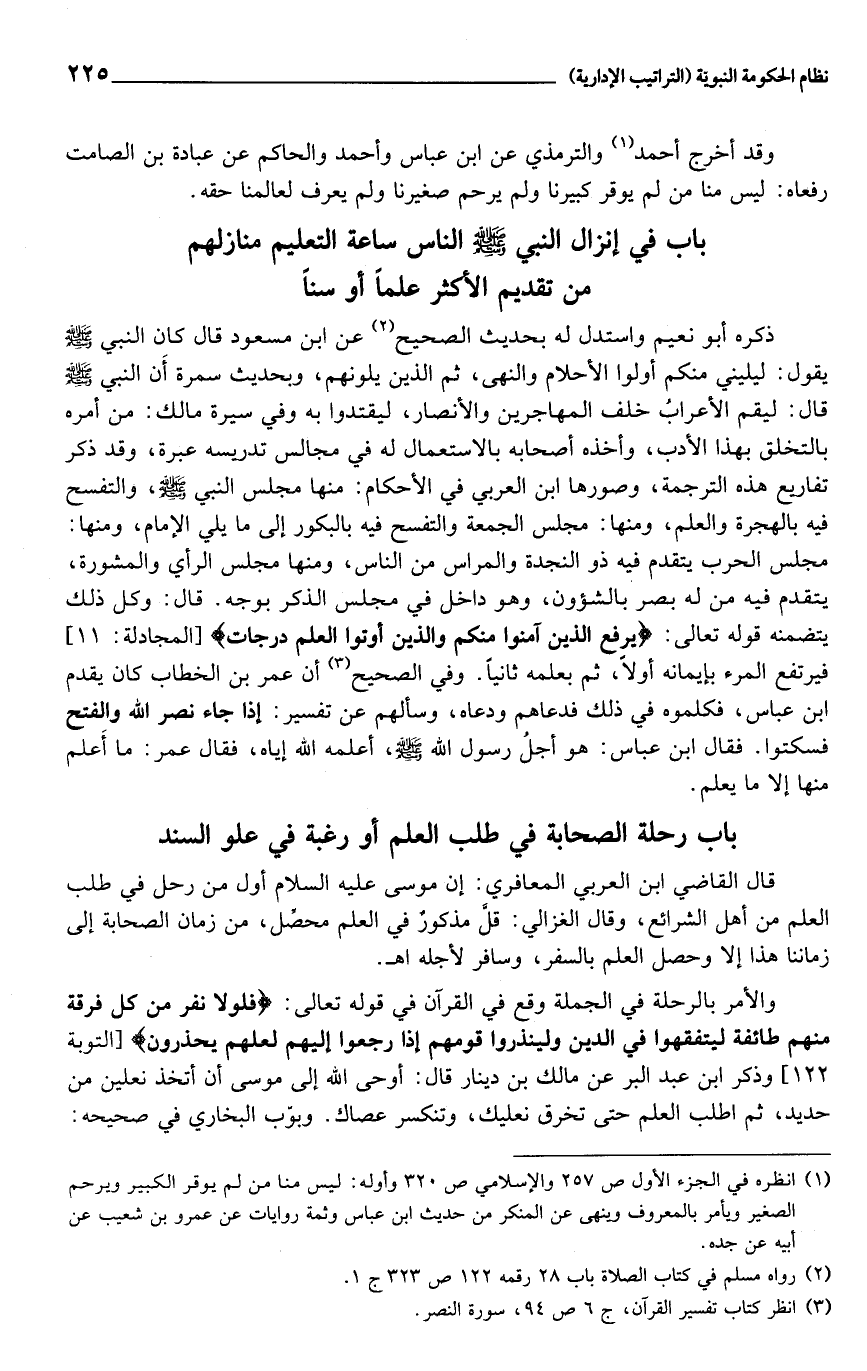 نظام الحكومة النبويّة (التراتيب الإدارية) ٢٢٥
وقد أخرج أحمد(١) والترمذي عن ابن عباس وأحمد والحاكم عن عبادة بن الصامت
رفعاه: ليس منا من لم يوقر كبيرنا ولم يرحم صغيرنا ولم يعرف لعالمنا حقه.
باب في إنزال النبي ﷺ الناس ساعة التعليم منازلهم
من تقديم الأكثر علماً أو سناً
ذكره أبو نعيم واستدل له بحديث الصحيح(٢) عن ابن مسعود قال كان النبي ﷺ
يقول: ليليني منكم أولوا الأحلام والنهى، ثم الذين يلونهم، وبحديث سمرة أَن النبي ﷺ
قال: ليقم الأعرابُ خلف المهاجرين والأنصار، ليقتدوا به وفي سيرة مالك: من أمره
بالتخلق بهذا الأدب، وأخذه أصحابه بالاستعمال له في مجالس تدريسه عبرة، وقد ذكر
تفاريع هذه الترجمة، وصورها ابن العربي في الأحكام: منها مجلس النبي ﷺ، والتفسح
فيه بالهجرة والعلم، ومنها: مجلس الجمعة والتفسح فيه بالبكور إلى ما يلي الإمام، ومنها:
مجلس الحرب يتقدم فيه ذو النجدة والمراس من الناس، ومنها مجلس الرأي والمشورة،
يتقدم فيه من له بصر بالشؤون، وهو داخل في مجلس الذكر بوجه. قال: وكل ذلك
يتضمنه قوله تعالى: ﴿يرفع الذين آمنوا منكم والذين أوتوا العلم درجات﴾ [المجادلة: ١١]
فيرتفع المرء بإيمانه أولاً، ثم بعلمه ثانياً. وفي الصحيح(٣) أن عمر بن الخطاب كان يقدم
ابن عباس، فكلموه في ذلك فدعاهم ودعاه، وسألهم عن تفسير: إذا جاء نصر الله والفتح
فسكتوا. فقال ابن عباس: هو أجلُ رسول الله ﷺ، أعلمه الله إياه، فقال عمر: ما أَعلم
منها إلا ما يعلم.
باب رحلة الصحابة في طلب العلم أو رغبة في علو السند
قال القاضي ابن العربي المعافري: إن موسى عليه السلام أول من رحل في طلب
العلم من أهل الشرائع، وقال الغزالي: قلَّ مذكورٌ في العلم محصِّل، من زمان الصحابة إلى
زماننا هذا إلا وحصل العلم بالسفر، وسافر لأجله اهـ.
والأمر بالرحلة في الجملة وقع في القرآن في قوله تعالى: ﴿فلولا نفر من كل فرقة
منهم طائفة ليتفقهوا في الدين ولينذروا قومهم إذا رجعوا إليهم لعلهم يحذرون﴾ [التوبة
١٢٢] وذكر ابن عبد البر عن مالك بن دينار قال: أوحى الله إلى موسى أن أتخذ نعلين من
حديد، ثم اطلب العلم حتى تخرق نعليك، وتنكسر عصاك. وبوّب البخاري في صحيحه:
(١) انظره في الجزء الأول ص ٢٥٧ والإسلامي ص ٣٢٠ وأوله: ليس منا من لم يوقر الكبير ويرحم
الصغير ويأمر بالمعروف وينهى عن المنكر من حديث ابن عباس وثمة روايات عن عمرو بن شعيب عن
أبيه عن جده.
(٢) رواه مسلم في كتاب الصلاة باب ٢٨ رقمه ١٢٢ ص ٣٢٣ ج ١.
(٣) انظر كتاب تفسير القرآن، ج ٦ ص ٩٤، سورة النصر.